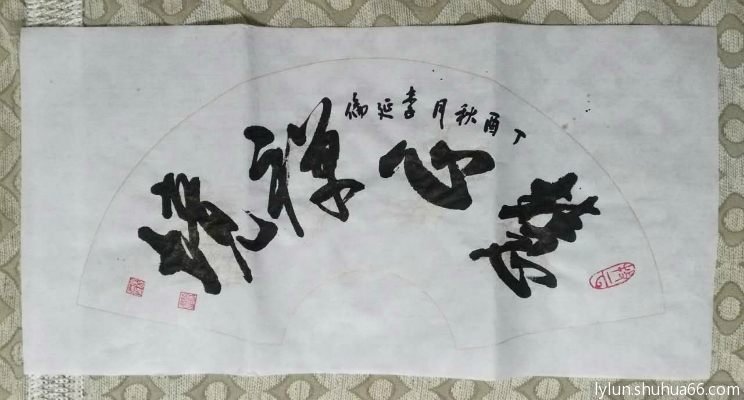 心禅境
丁酉秋月李延倫
lylun.shuhua66.com